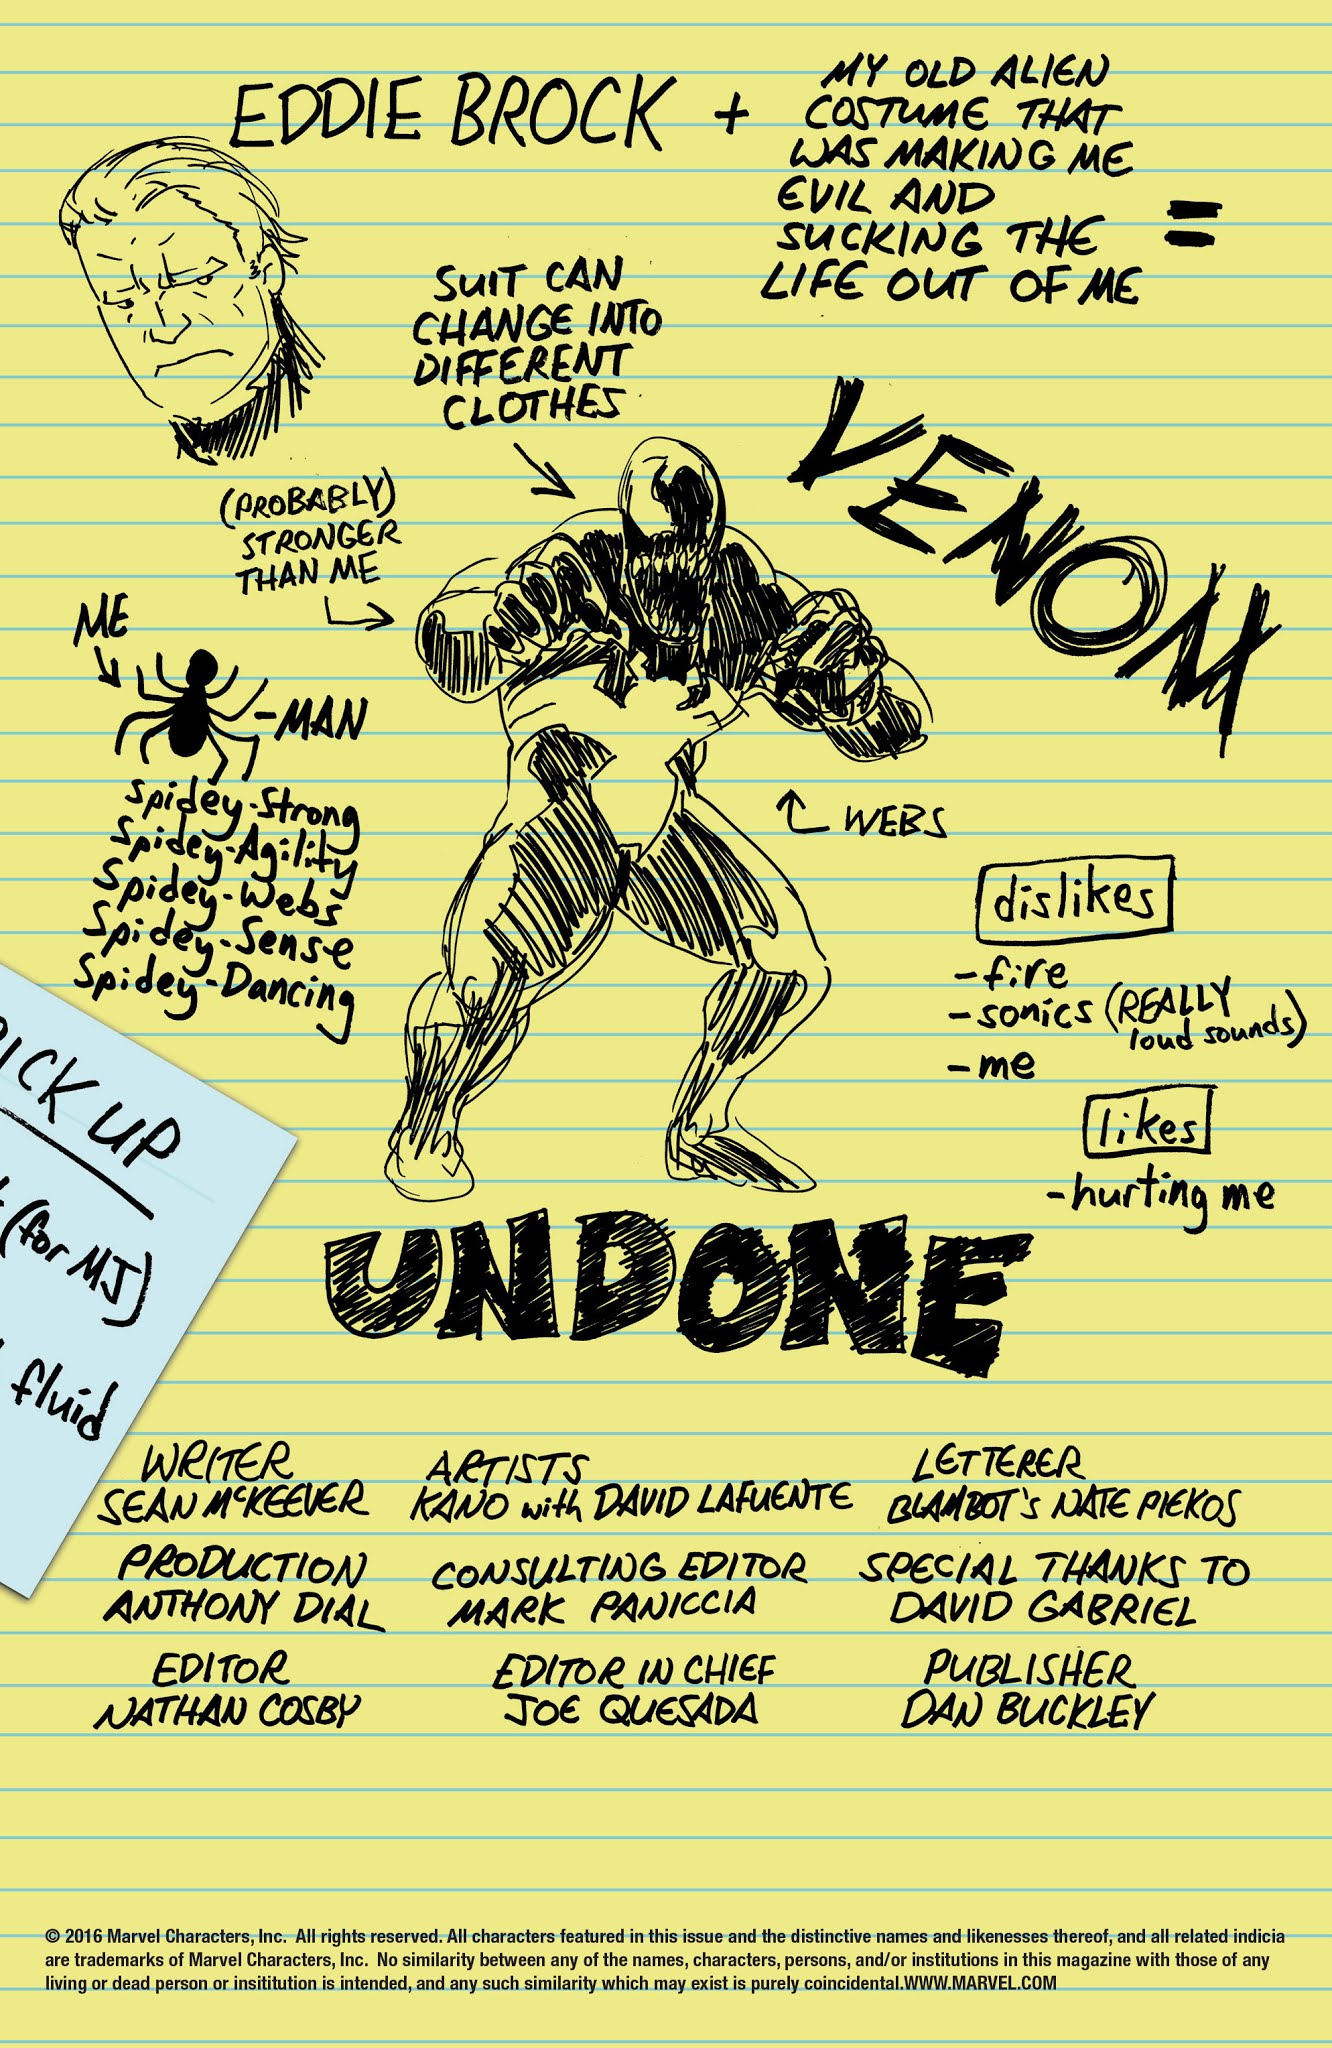 EDDIE BROCK +
MY OLD ALIEN
COSTUME THAT
WAS MAKING ME
EVIL AND
SUCKING THE
LIFE OUT OF ME
=
VENOM
SUIT CAN
CHANGE INTO
DIFFERENT
CLOTHES
(PROBABLY)
STRONGER
THAN ME
ME
-MAN
Spidey-Strong
Spidey-Agility
Spidey-Webs
Spidey-Sense
Spidey-Dancing
WEBS
dislikes
-fire
-sonics (REALLY
loud sounds)
-me
likes
-hurting me
UP
(for MJ)
fluid
UNDONE
WRITER
SEAN McKEEVER
ARTISTS
KANO with DAVID LAFUENTE
LETTERER
BLAMBOT'S NATE PIEKOS
PRODUCTION
ANTHONY DIAL
CONSULTING EDITOR
MARK PANICCIA
SPECIAL THANKS TO
DAVID GABRIEL
EDITOR
NATHAN COSBY
EDITOR IN CHIEF
JOE QUESADA
PUBLISHER
DAN BUCKLEY
© 2016 Marvel Characters, Inc. All rights reserved. All characters featured in this issue and the distinctive names and likenesses thereof, and all related indicia
are trademarks of Marvel Characters, Inc. No similarity between any of the names, characters, persons, and/or institutions in this magazine with those of any
living or dead person or insititution is intended, and any such similarity which may exist is purely coincidental.WWW.MARVEL.COM